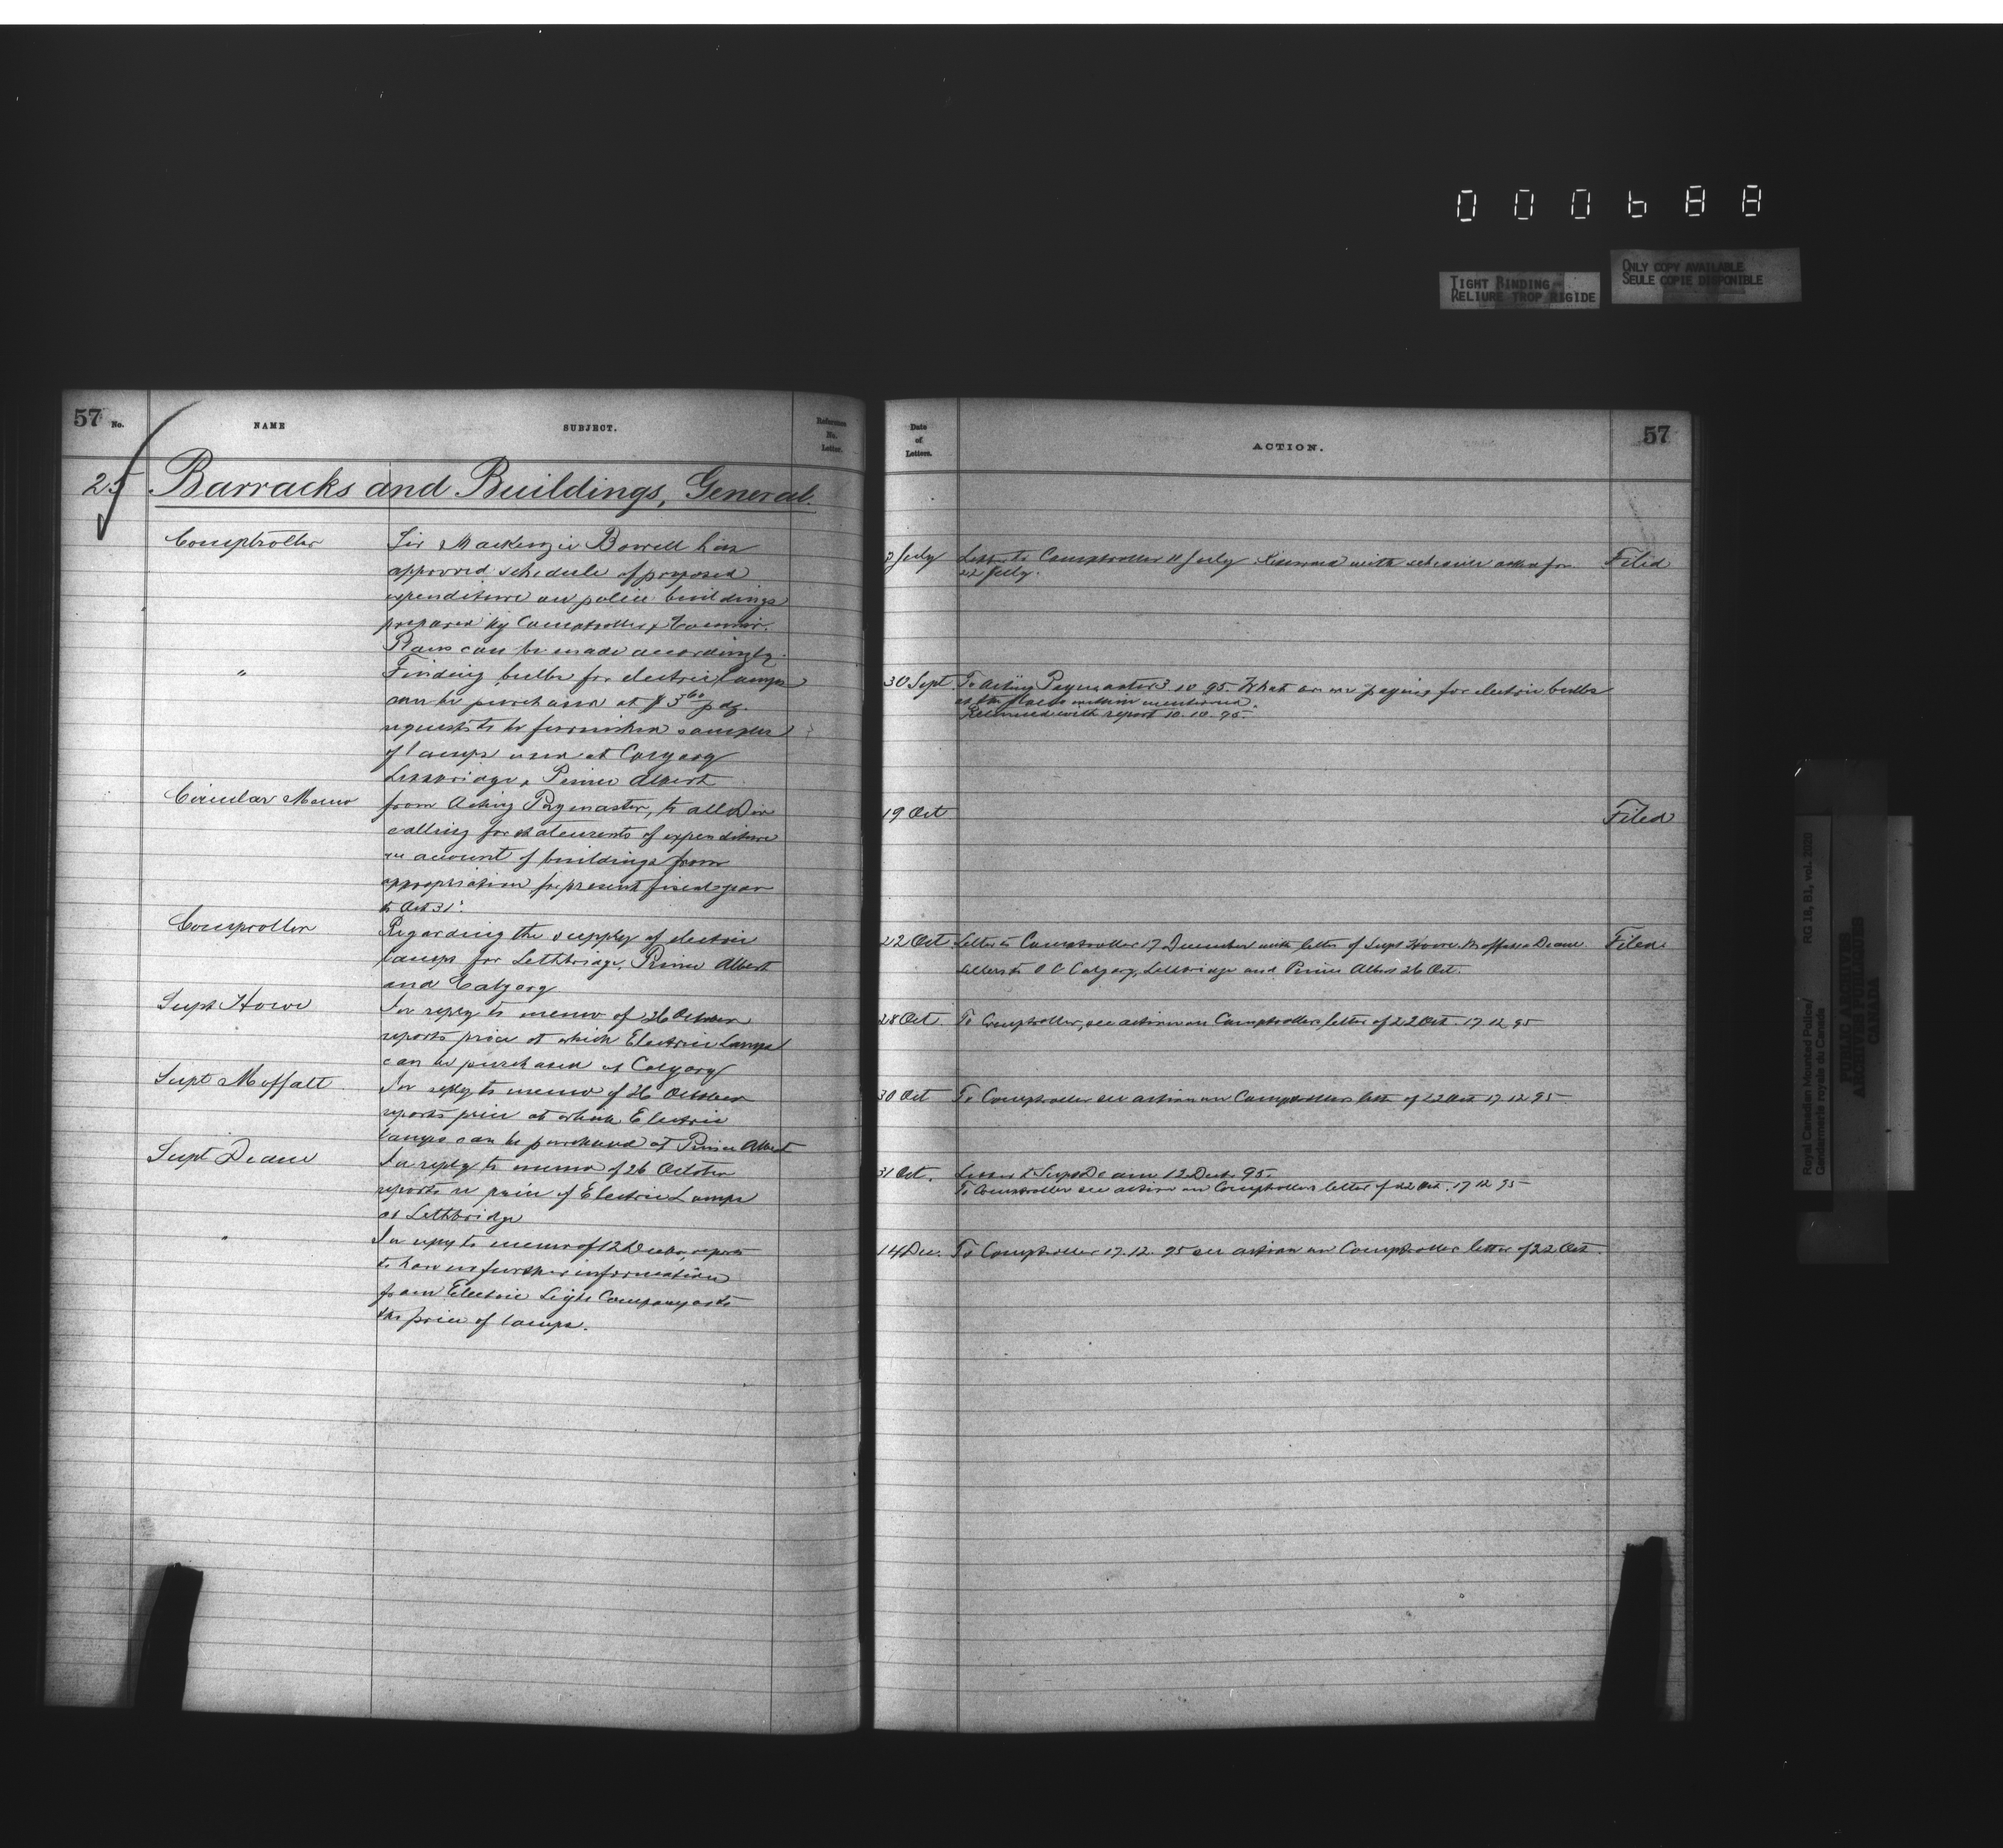 000688
TIGHT BINDING
RELIURE TROP RIGIDE
ONLY COPY AVAILABLE
SEULE COPIE DISPONIBLE
57 No.
NAME
SUBJECT.
Reference No. Letter.
25
Barracks and Buildings, General.
Comptroller
Sir Mackenzie Bowell has
approved schedule of proposed
expenditure on police buildings
prepared by Comptroller & Commr.
Plans can be made accordingly.
"
Finding bulbs for electric lamps
can be purchased at $3 60 p dz.
requests to be furnished samples
of lamps used at Calgary
Lethbridge, Prince Albert
Circular Memo
from Acting Paymaster, to all Div
calling for statements of expenditure
on account of buildings from
appropriation for present fiscal year
to Oct 31st.
Comptroller
Regarding the supply of electric
lamps for Lethbridge, Prince Albert
and Calgary
Supt Howe
In reply to memo of 26 October
reports price at which Electric Lamps
can be purchased at Calgary
Supt Moffatt
In reply to memo of 26 October
reports price at which Electric
lamps can be purchased at Prince Albert
Supt Deane
In reply to memo of 26 October
reports re price of Electric Lamps
at Lethbridge
"
In reply to memo of 12 Decbr, reports
to have no further information
from Electric Light Company as to
the price of lamps.
Date of Letters.
ACTION.
57
July
Letter to Comptroller 11 July Returned with schedule asked for
22 July.
Filed
30 Sept
To Acting Paymaster 3.10.95. What are we paying for electric bulbs
at the places within mentioned.
Returned with report 10.10.95.
19 Oct
Filed
22 Oct
Letter to Comptroller 17 December with letter of Supt Howe, Moffatt & Deane
Letters to O C Calgary, Lethbridge and Prince Albert 26 Oct.
Filed
28 Oct.
To Comptroller, see action on Comptrollers letter of 22 Oct. 17.12.95
30 Oct
To Comptroller see action on Comptrollers letter of 22 Oct 17.12.95
31 Oct.
Letter to Supt Deane 12 Decbr 95.
To Comptroller see action on Comptrollers letter of 22 Oct. 17 12 95
14 Dec.
To Comptroller 17.12.95 see action on Comptroller letter of 22 Oct.
Royal Canadian Mounted Police/
Gendarmerie royale du Canada
RG 18, B1, vol. 2020
PUBLIC ARCHIVES
ARCHIVES PUBLIQUES
CANADA